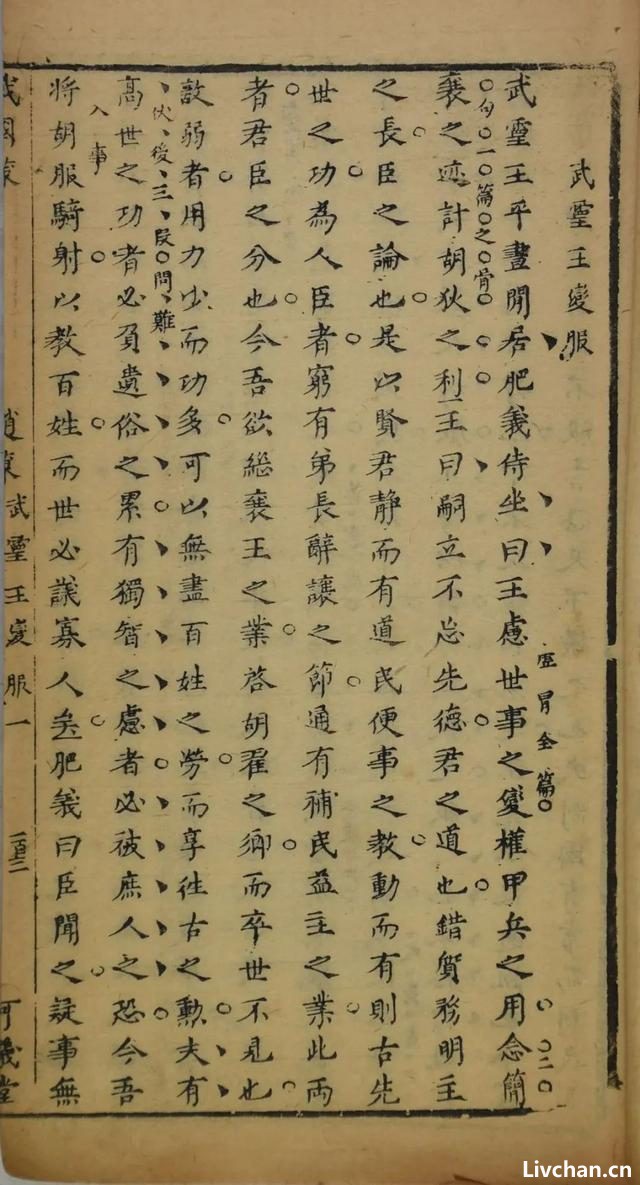 武靈王變服
武靈王平晝閒居肥義侍坐曰王慮世事之變權甲兵之用念簡
襄之迹計胡狄之利王曰嗣立不忘先德君之道也錯質務明主
之長臣之論也是以賢君靜而有道民便事之教動而有則古先
世之功為人臣者窮有弟長辭讓之節通有補民益主之業此兩
者君臣之分也今吾欲繼襄王之業啓胡翟之鄉而卒世不見也
敵弱者用力少而功多可以無盡百姓之勞而享徃古之勲夫有
高世之功者必負遺俗之累有獨智之慮者必被庶人之恐今吾
將胡服騎射以教百姓而世必議寡人矣肥義曰臣聞之疑事無
冒全篇
二句一篇之骨
伏後三段問難
入事
戰國策
趙策 武靈王變服 一
百三
Livchan.cn